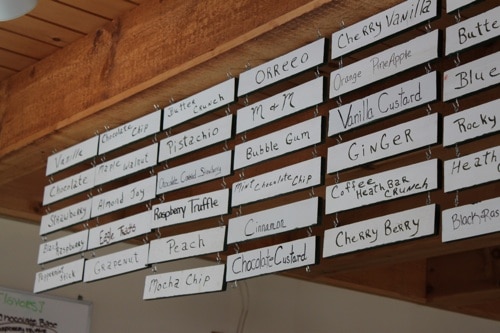 Vanilla
Chocolate
Strawberry
Black Raspberry
Peppermint Stick
Chocolate Chip
Maple Walnut
Almond Joy
Grapenut
Butter Crunch
Pistachio
Raspberry Truffle
Peach
Mocha Chip
ORREEO
M & M
Bubble Gum
Mint Chocolate Chip
Cinnamon
Chocolate Custard
Cherry Vanilla
Orange PineApple
Vanilla Custard
GINGER
Coffee HeathBAR CRUNCH
Cherry Berry
Butte
Blue
Rocky
Heath
Black Ras
Flavors!